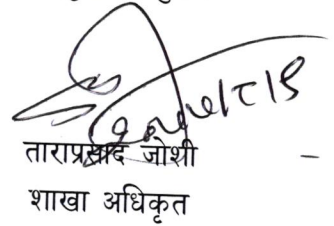 ताराप्रसाद जोशी
शाखा अधिकृत